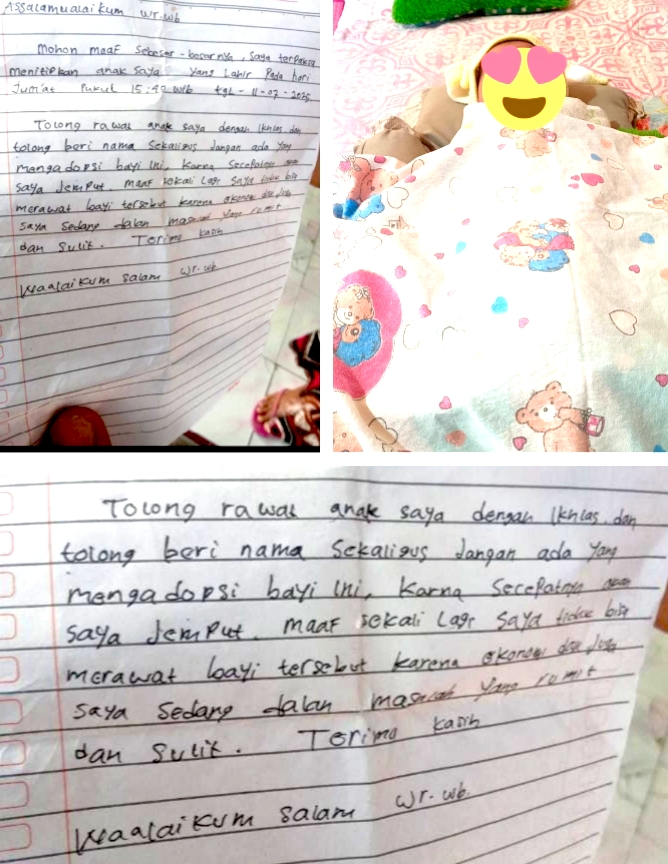 Assalamualaikum wr.wb
Mohon maaf sebesar-besarnya, saya terpaksa
menitipkan anak saya yang lahir pada hari
Jum'at pukul 15:49 wib tgl - 11-07-2025
Tolong rawat anak saya dengan ikhlas dan
tolong beri nama sekaligus jangan ada yang
mengadopsi bayi ini, karna secepatnya akan
saya jemput. maaf sekali lagi saya tidak bisa
merawat bayi tersebut karena ekonomi dan juga
saya sedang dalan masalah yang rumit
dan sulit. Terima kasih
Waalaikum salam wr.wb
Tolong rawat anak saya dengan ikhlas dan
tolong beri nama sekaligus jangan ada yang
mengadopsi bayi ini, karna secepatnya akan
saya jemput. maaf sekali lagi saya tidak bisa
merawat bayi tersebut karena ekonomi dan juga
saya sedang dalan masalah yang rumit
dan sulit. Terima kasih
Waalaikum salam wr.wb.